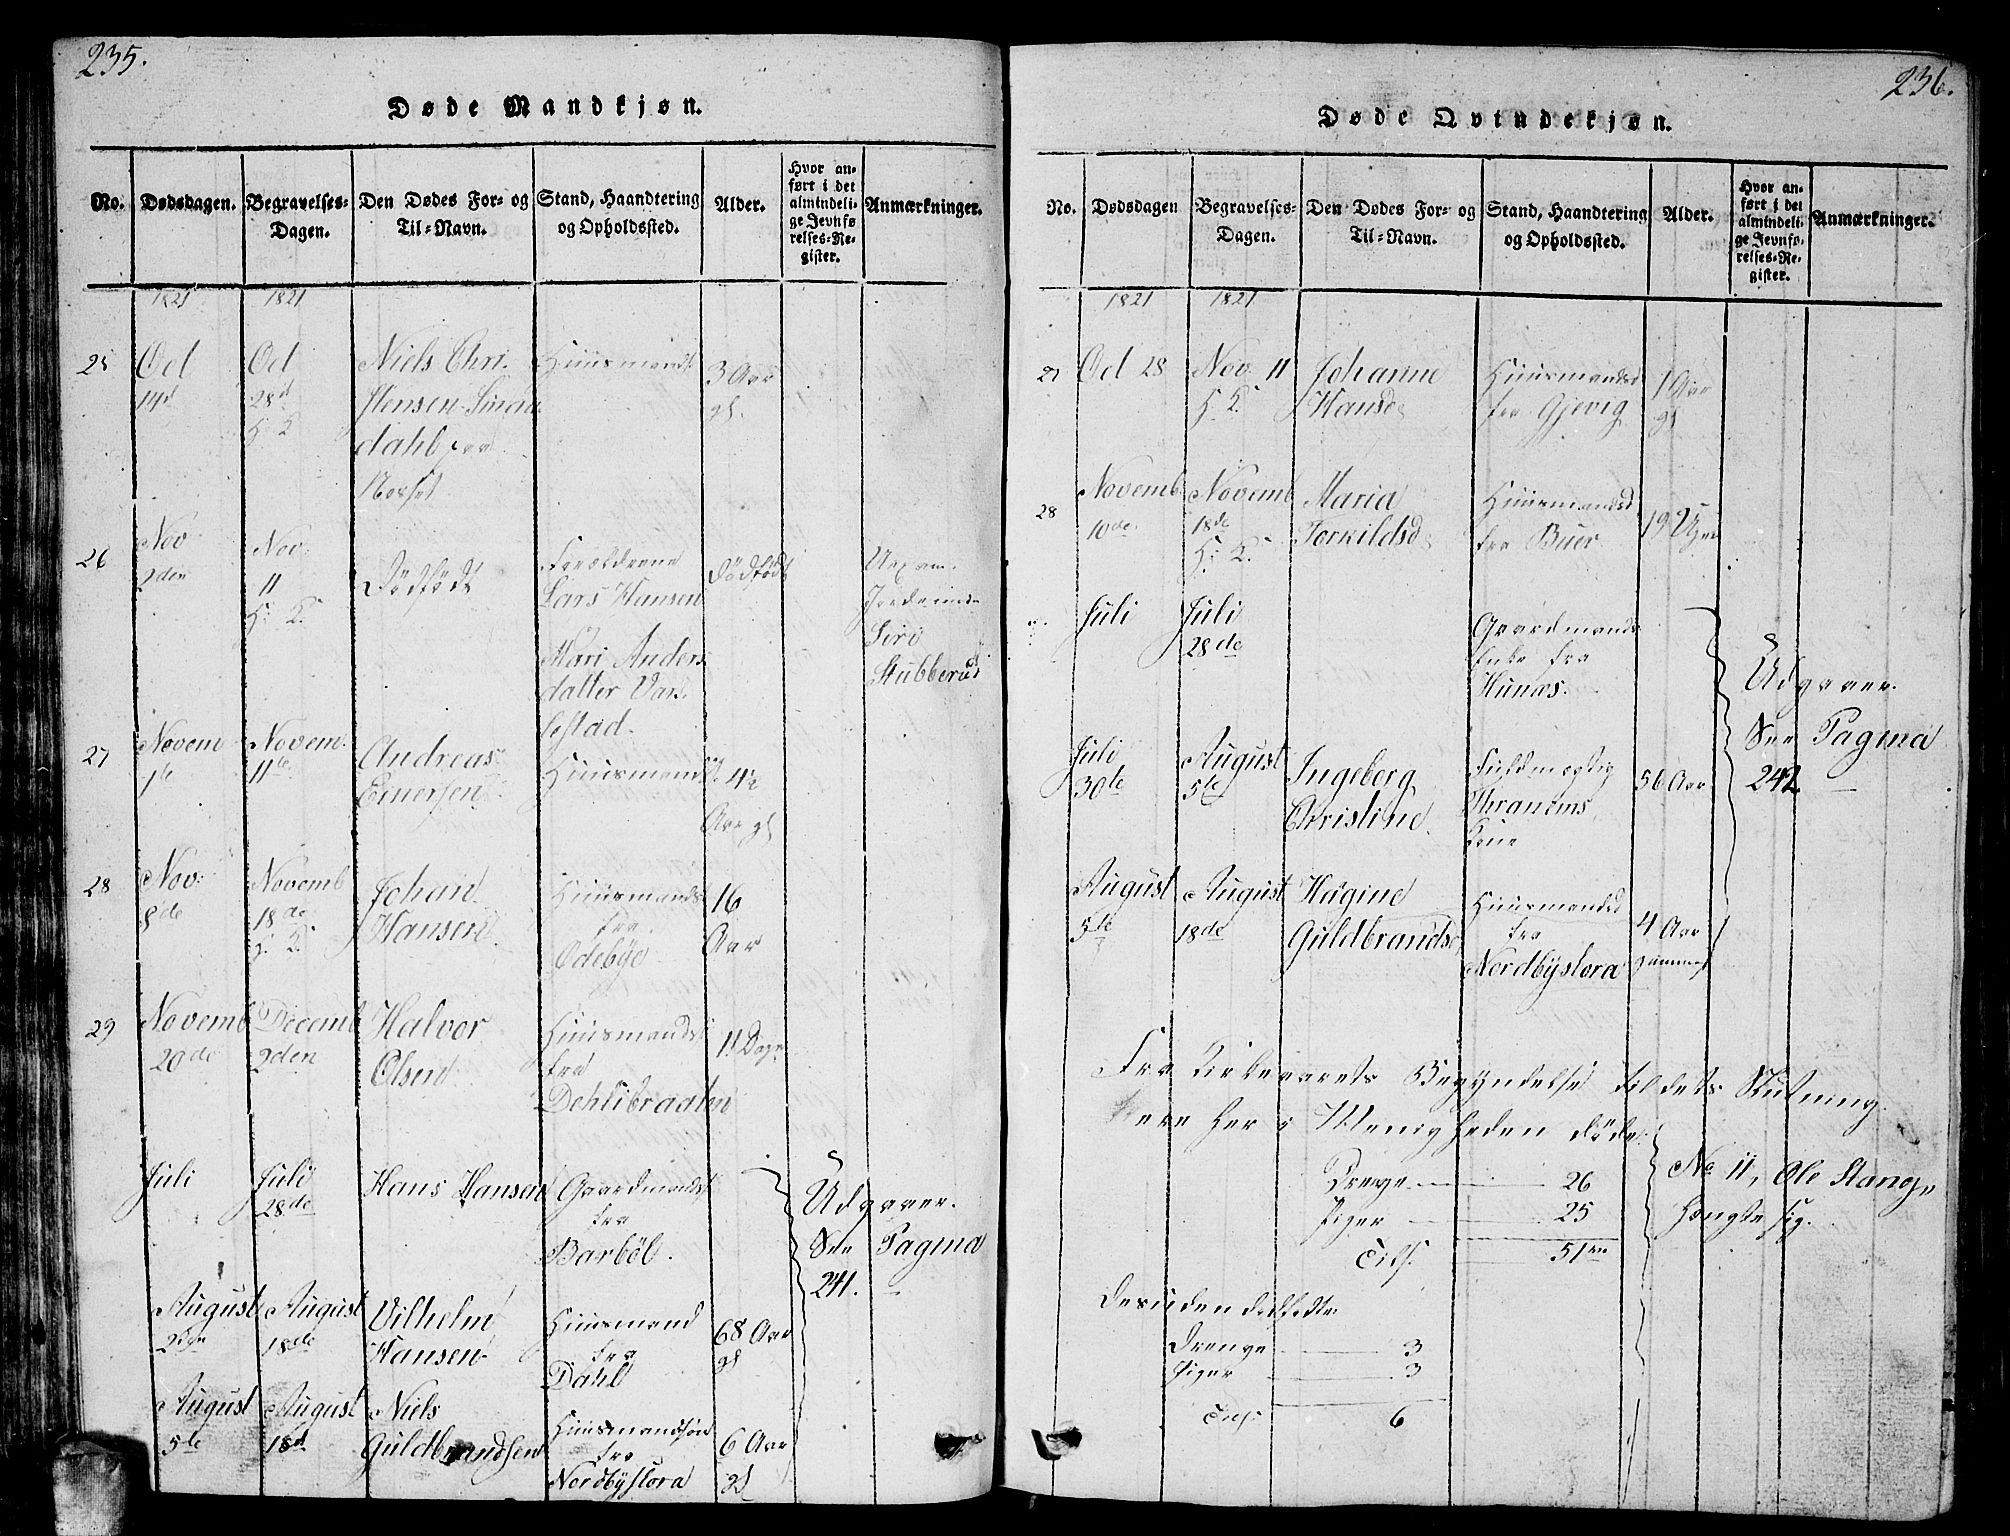 235.
Døde Mandkjøn.
No.
Dødsdagen.
Begravelses-
Dagen.
Den Dødes For- og
Til-Navn.
Stand, Haandtering
og Opholdssted.
Alder.
Hvor an-
ført i det
almindeli-
ge Jevnfø
relses-Re-
gister.
Anmærkninger.
1821
1821
25
Oct
14d
Oct
28d
H. K
Niels Chri-
stensen
dahl fra
Huusmands
3 Aar
gl.
26
Nov
2den
Nov.
11
H. K.
Dödfödt
Forældrene
Lars Hansen
Mari Anders
datter
Dödfödt
Jordemoder
Siri
Stubberud
27
Novem
1te
Novem.
11te
Andreas
Enersen
Huusmands
4½
Aar gl
28
Nov.
8de
Novemb
18de
H. K.
Johan
Hansen
Huusmands
fra
Odebye
16
Aar
29
Novemb
20de
Decemb
2den
Halvor
Olsen
Huusmands
fra
Dehlibraaten
11 Dage
Juli
Juli
28de
Hans Hansen
Gaardmands
fra
Barböl.
Udgaaer.
See Pagina
241.
August
August
18de
Vilhelm
Hansen
Huusmand
fra
Dahl
68 Aar
gl
August
5te
August
18d
Niels
Guldbrandsen
Huusmandsön
fra
Nordbystora
6 Aar
gl
236.
Døde Qvindekjøn.
No.
Dødsdagen
Begravelses-
Dagen.
Den Dødes For- og
Til-Navn.
Stand, Haandtering
og Opholdssted.
Alder.
Hvor an-
ført i det
almindeli-
ge Jevnfø-
relses-Re-
gister.
Anmærkninger.
1821
1821
27
Oct 28
Nov. 11
H. K.
Johanne
Hansd
Huusmandsd
fra Gjevig
1 Aar
gl
28
Novemb
10de
Novemb
18de
H. K.
Maria
Torkildsd
Huusmandsd
fra Buer
19 Uger
Juli
Juli
28de
Gaardmands
Enke fra
Hunæs.
Udgaaer.
See Pagina
242
Juli
30te
August
5te
Ingeborg
Christine
Fuldmægtig
Thranems
Kone
56 Aar
August
5te
August
18de
Hagine
Guldbrandsd
Huusmandsd
fra
Nordbystora
4 Aar
gammel
Fra Kirkeaarets Begyndelse til dets Slutning
ere her i Menigheden döde:
Drenge 26
Piger 25
Tils. 51
No 11, Ole Stang,
hængte sig.
Desuden dødfødte
Drenge 3
Piger 3
Tils. 6